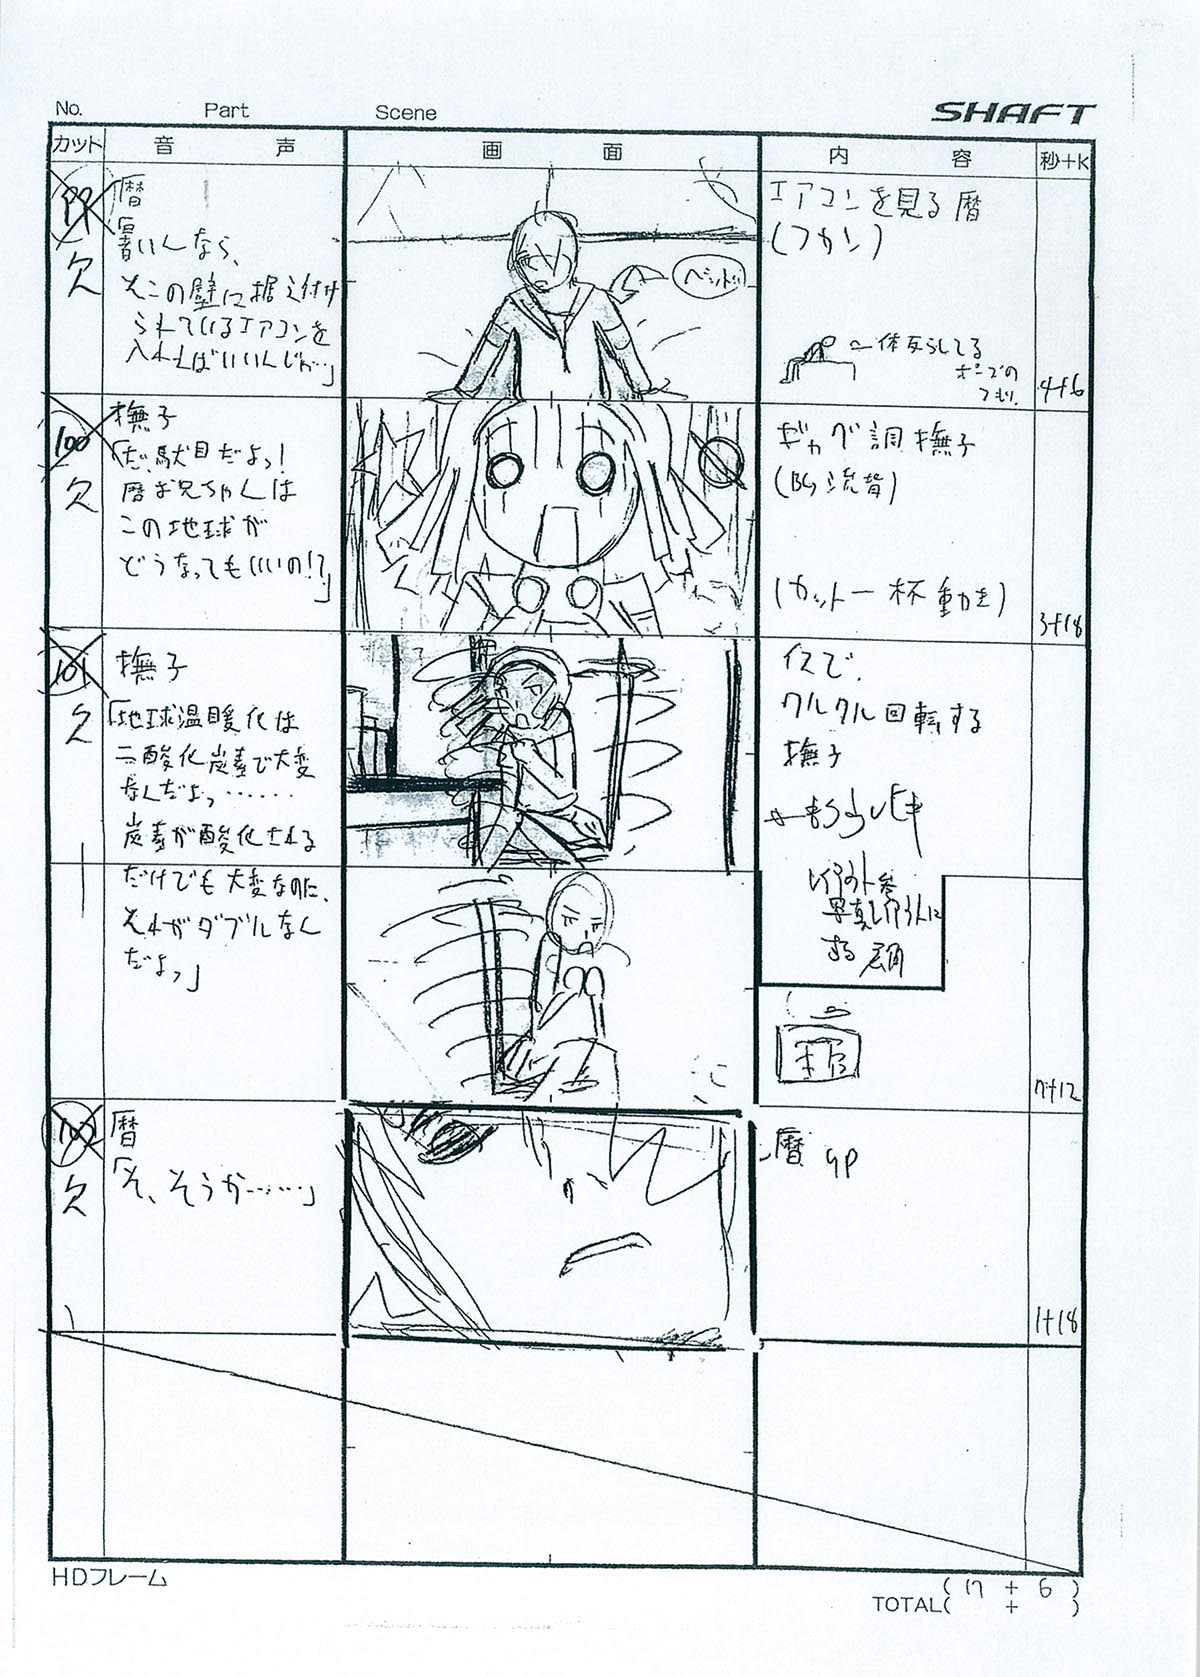 No. Part Scene SHAFT
カット 音 声 画 面 内 容 秒+K
99
欠
暦
「暑いんなら、
そこの壁に据え付け
られているエアコンを
入れればいいんじゃ…」
ベッド
エアコンを見る暦
(フカン)
体反らしてる
ポーズの
つもり。
4+6
100
欠
撫子
「だ、駄目だよっ!
暦お兄ちゃんは
この地球が
どうなってもいいの!?」
ギャグ調撫子
(BG流背)
(カット一杯動き)
3+18
101
欠
撫子
「地球温暖化は
二酸化炭素で大変
なんだよっ……
炭素が酸化される
だけでも大変なのに、
それがダブルなん
だよっ」
イスで
クルクル回転する
撫子
7+12
欠
暦
「そ、そうか……」
暦 UP
1+18
HDフレーム
(17 + 6)
TOTAL( + )